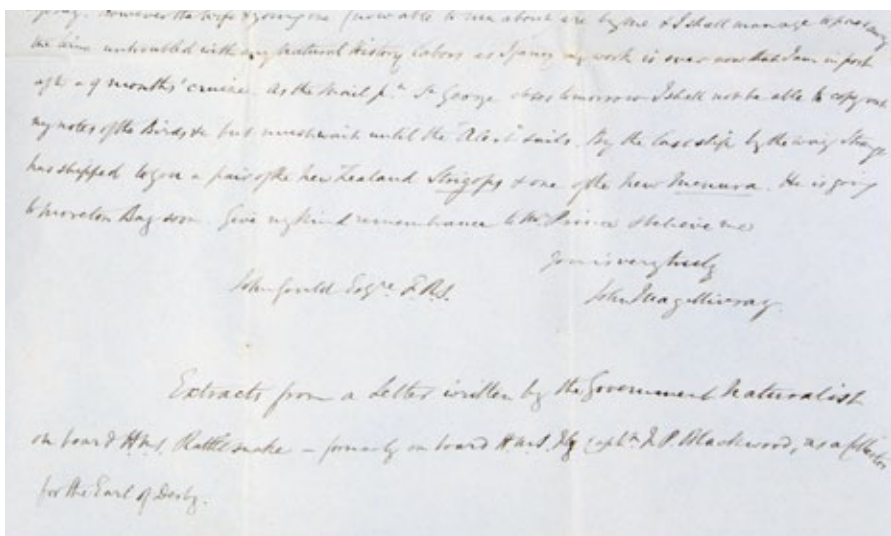 However the wife & young one (now able to run about are by me & I shall manage to pass
the time untroubled with any Natural History labors as I fancy my work is over now that I am in port
after a 9 months' cruize. As the Mail pr. St George closes tomorrow I shall not be able to copy out
my notes of the Birds &c but must wait until the "Alert" sails. By the last ship by the way Strange
has shipped to you a pair of the New Zealand Strigops & one of the new Menura. He is going
to Moreton Bay soon. Give my kind remembrance to Mr. Prince & believe me
Yours very truly
John Gould Esqre. F.R.S.
John Macgillivray.
Extracts from a Letter written by the Government Naturalist
on board H.M.S. Rattlesnake – formerly on board H.M.S. Fly Captn. F. P. Blackwood, as a Collector
for the Earl of Derby.